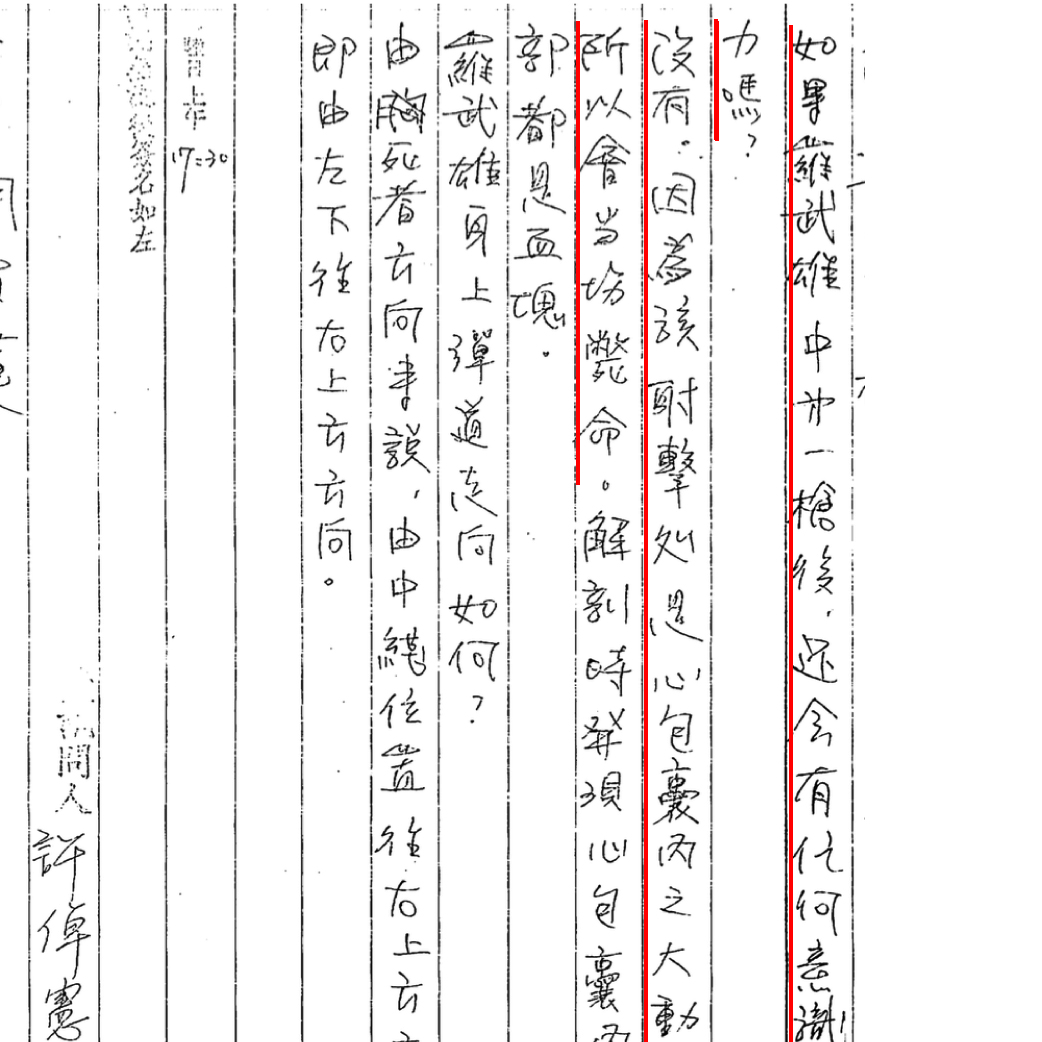 如果羅武雄中第一槍後，還會有任何意識
力嗎？
沒有。因為該射擊處是心包囊內之大動
所以會當場斃命。解剖時發現心包囊內
部都是血塊。
羅武雄身上彈道走向如何？
由胸死者方向來說，由中線位置往右上方
即由左下往右上方方向。
17:30
簽名如左
訊問人 許倬憲